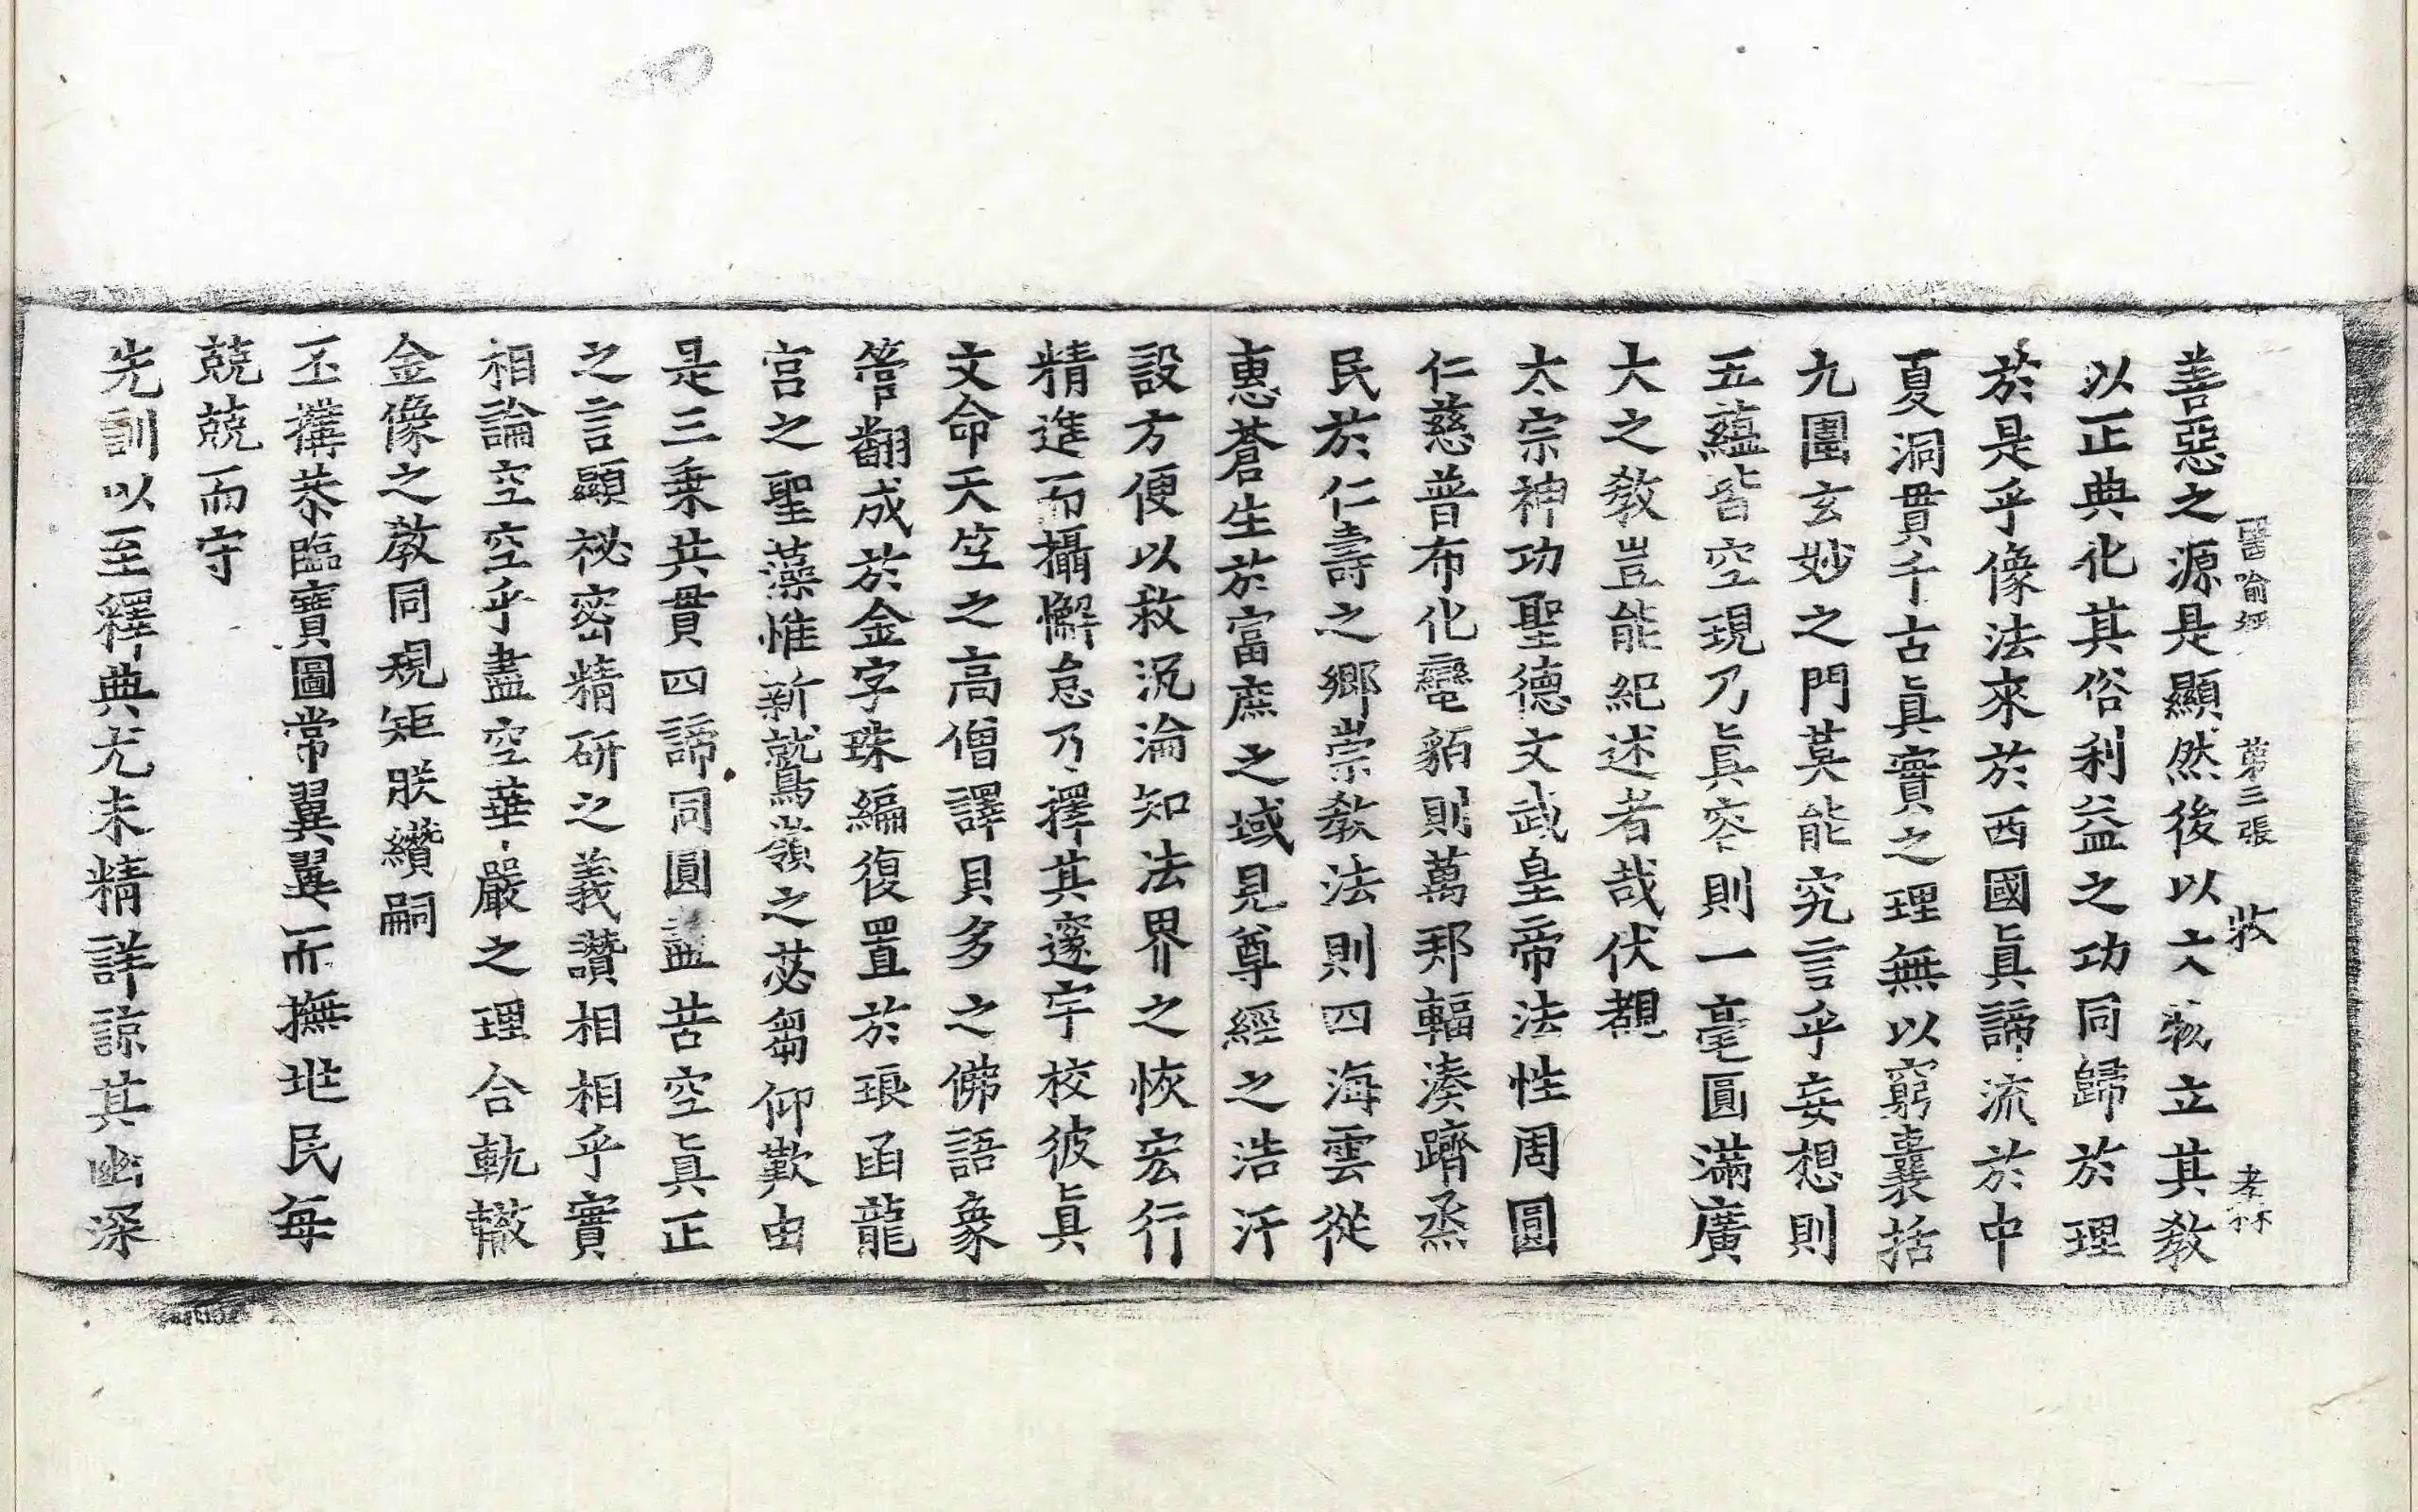 醫喻經 第三張 孝林
善惡之源是顯然後以六藝立其教
以正典化其俗利益之功同歸於理
於是乎像法來於西國眞諦流於中
夏洞貫千古眞實之理無以窮囊括
九圍玄妙之門莫能究言乎妄想則
五蘊皆空現乃眞容則一毫圓滿廣
大之教豈能紀述者哉伏覩
太宗神功聖德文武皇帝法性周圓
仁慈普布化蠻貊則萬邦輻湊躋烝
民於仁壽之鄉崇教法則四海雲從
惠蒼生於富庶之域見尊經之浩汗
設方便以救沉淪知法界之恢宏行
精進而攝懈怠乃擇其邃宇校彼眞
文命天竺之高僧譯貝多之佛語象
管翻成於金字珠編復置於琅函龍
宮之聖藻惟新鷲嶺之苾芻仰歎由
是三乘共貫四諦同圓盡苦空眞正
之言顯祕密精研之義讚相相乎實
相論空空乎盡空華嚴之理合軌轍
金像之教同規矩朕纘嗣
丕搆恭臨寶圖常翼翼而撫兆民每
兢兢而守
先訓以至釋典尤未精詳諒其幽深